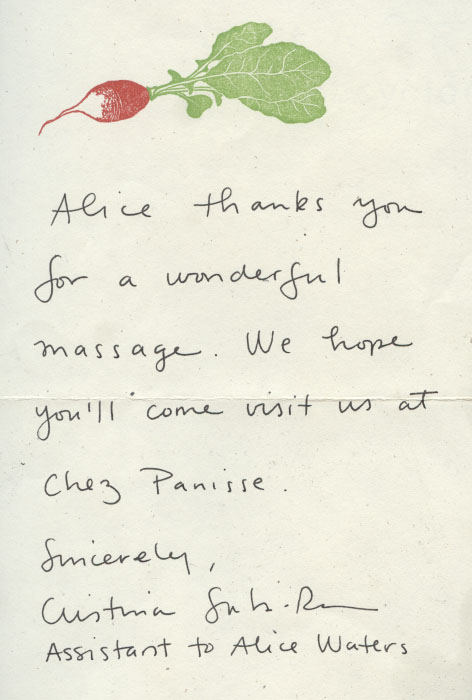 Alice thanks you
for a wonderful
massage. We hope
you'll come visit us at
Chez Panisse.
Sincerely,
Cristina
Assistant to Alice Waters